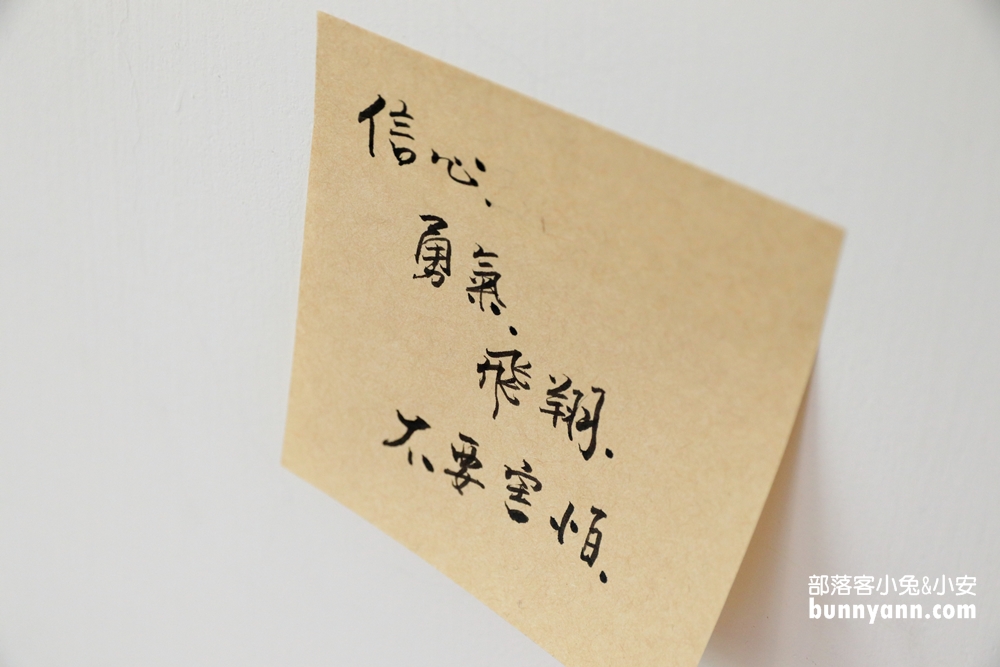 信心、
勇氣、
飛翔、
不要害怕、
部落客小兔&小安
bunnyann.com